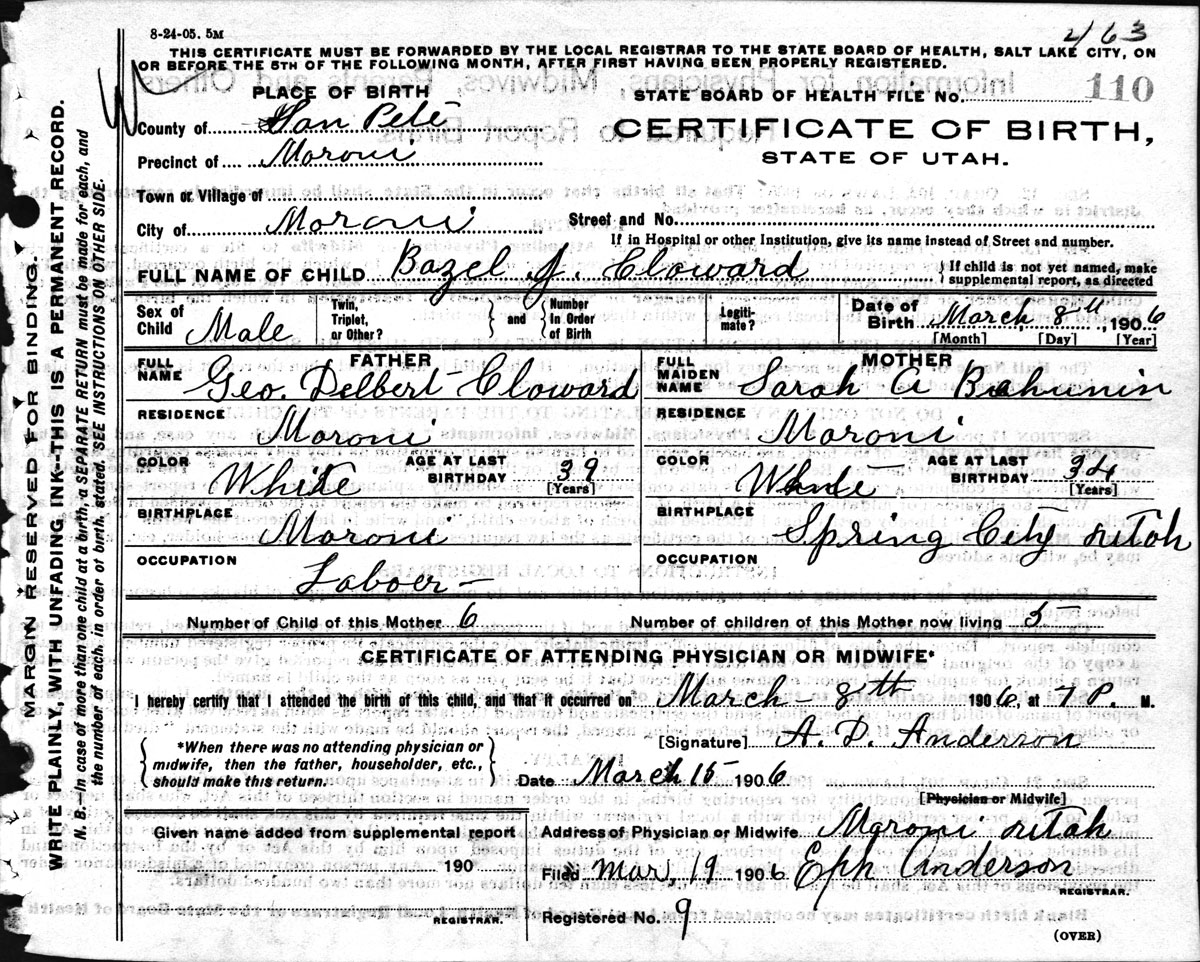 8-24-05. 5M
2463
THIS CERTIFICATE MUST BE FORWARDED BY THE LOCAL REGISTRAR TO THE STATE BOARD OF HEALTH, SALT LAKE CITY, ON
OR BEFORE THE 5TH OF THE FOLLOWING MONTH, AFTER FIRST HAVING BEEN PROPERLY REGISTERED.
PLACE OF BIRTH
STATE BOARD OF HEALTH FILE No. 110
County of San Pete
CERTIFICATE OF BIRTH,
Precinct of Moroni
STATE OF UTAH.
Town or Village of
City of Moroni
Street and No.
If in Hospital or other Institution, give its name instead of Street and number.
FULL NAME OF CHILD Bazel J. Cloward
If child is not yet named, make
supplemental report, as directed
Sex of Child Male
Twin, Triplet, or Other?
and
Number in Order of Birth
Legiti-mate?
Date of Birth March 8th, 1906
[Month] [Day] [Year]
FATHER
FULL NAME Geo. Delbert Cloward
MOTHER
FULL MAIDEN NAME Sarah A
RESIDENCE Moroni
RESIDENCE Moroni
COLOR White
AGE AT LAST BIRTHDAY 39
[Years]
COLOR White
AGE AT LAST BIRTHDAY 34
[Years]
BIRTHPLACE Moroni
BIRTHPLACE Spring City Utah
OCCUPATION Laboer -
OCCUPATION
Number of Child of this Mother 6
Number of children of this Mother now living 5
CERTIFICATE OF ATTENDING PHYSICIAN OR MIDWIFE*
I hereby certify that I attended the birth of this child, and that it occurred on March - 8th 1906, at 7 P. M.
*When there was no attending physician or
midwife, then the father, householder, etc.,
should make this return.
[Signature] A. D. Anderson
Date March 15 1906
[Physician or Midwife]
Given name added from supplemental report
190
REGISTRAR.
Address of Physician or Midwife Moroni Utah
Filed Mar 19 1906 Eph Anderson
REGISTRAR.
Registered No. 9
(OVER)
MARGIN RESERVED FOR BINDING.
WRITE PLAINLY, WITH UNFADING INK--THIS IS A PERMANENT RECORD.
N. B.--In case of more than one child at a birth, a SEPARATE RETURN must be made for each, and
the number of each, in order of birth, stated. SEE INSTRUCTIONS ON OTHER SIDE.